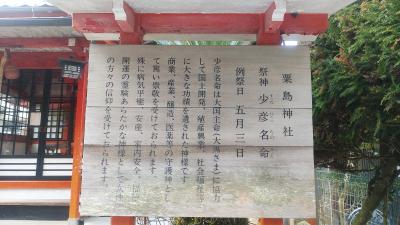 粟島神社
祭神 少彦名命
例祭日 五月三日
少彦名命は大国主命(大黒さま)に協力
して国土開発、殖産興業、社会福祉等
に大きな功績を遺された神様です
商業、産業、醸造、医薬等の守護神とし
て篤い崇敬を受けております。
殊に病気平癒、安産、家内安全、
開運の霊験あらたかな神様として
の方々の信仰を受けておられます。